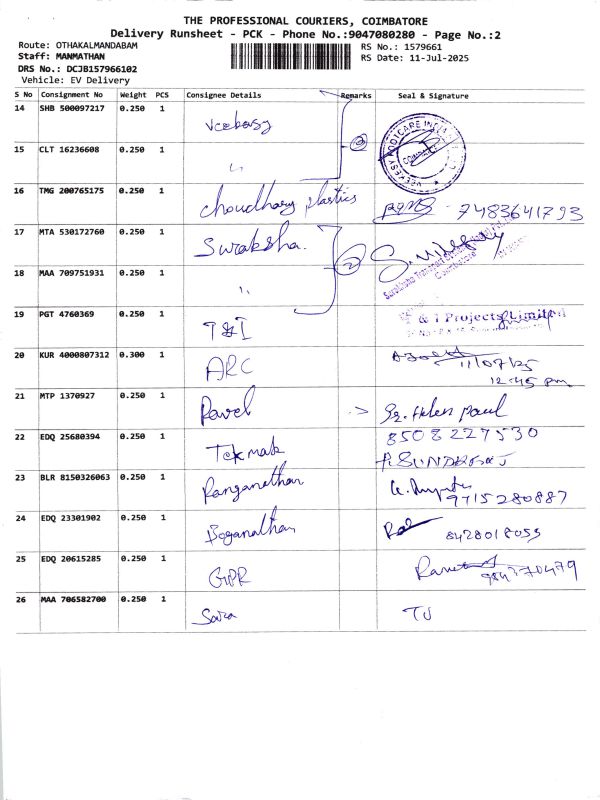 THE PROFESSIONAL COURIERS, COIMBATORE
Delivery Runsheet - PCK - Phone No.:9047080280 - Page No.:2
Route: OTHAKALMANDABAM
RS No.: 1579661
Staff: MANMATHAN
RS Date: 11-Jul-2025
DRS No.: DCJB157966102
Vehicle: EV Delivery
S No Consignment No Weight PCS Consignee Details Remarks Seal & Signature
14 SHB 500097217 0.250 1
15 CLT 16236608 0.250 1 "
16 TMG 200765175 0.250 1 choudhary plastics 7483641793
17 MTA 530172760 0.250 1 Suraksha. 2
18 MAA 709751931 0.250 1 "
19 PGT 4760369 0.250 1 T&I & I Projects Limited
20 KUR 4000807312 0.300 1 ARC 11/07/25
12:45 pm
21 MTP 1370927 0.250 1 Pavel -> Sr. Helen Paul
8508227530
22 EDQ 25680394 0.250 1 Tekmak P. SUNDRRAJ
23 BLR 8150326063 0.250 1 Ranganathan 9715280887
24 EDQ 23301902 0.250 1 Boganathan 8428018053
25 EDQ 20615285 0.250 1 GPR
26 MAA 706582700 0.250 1 Sara